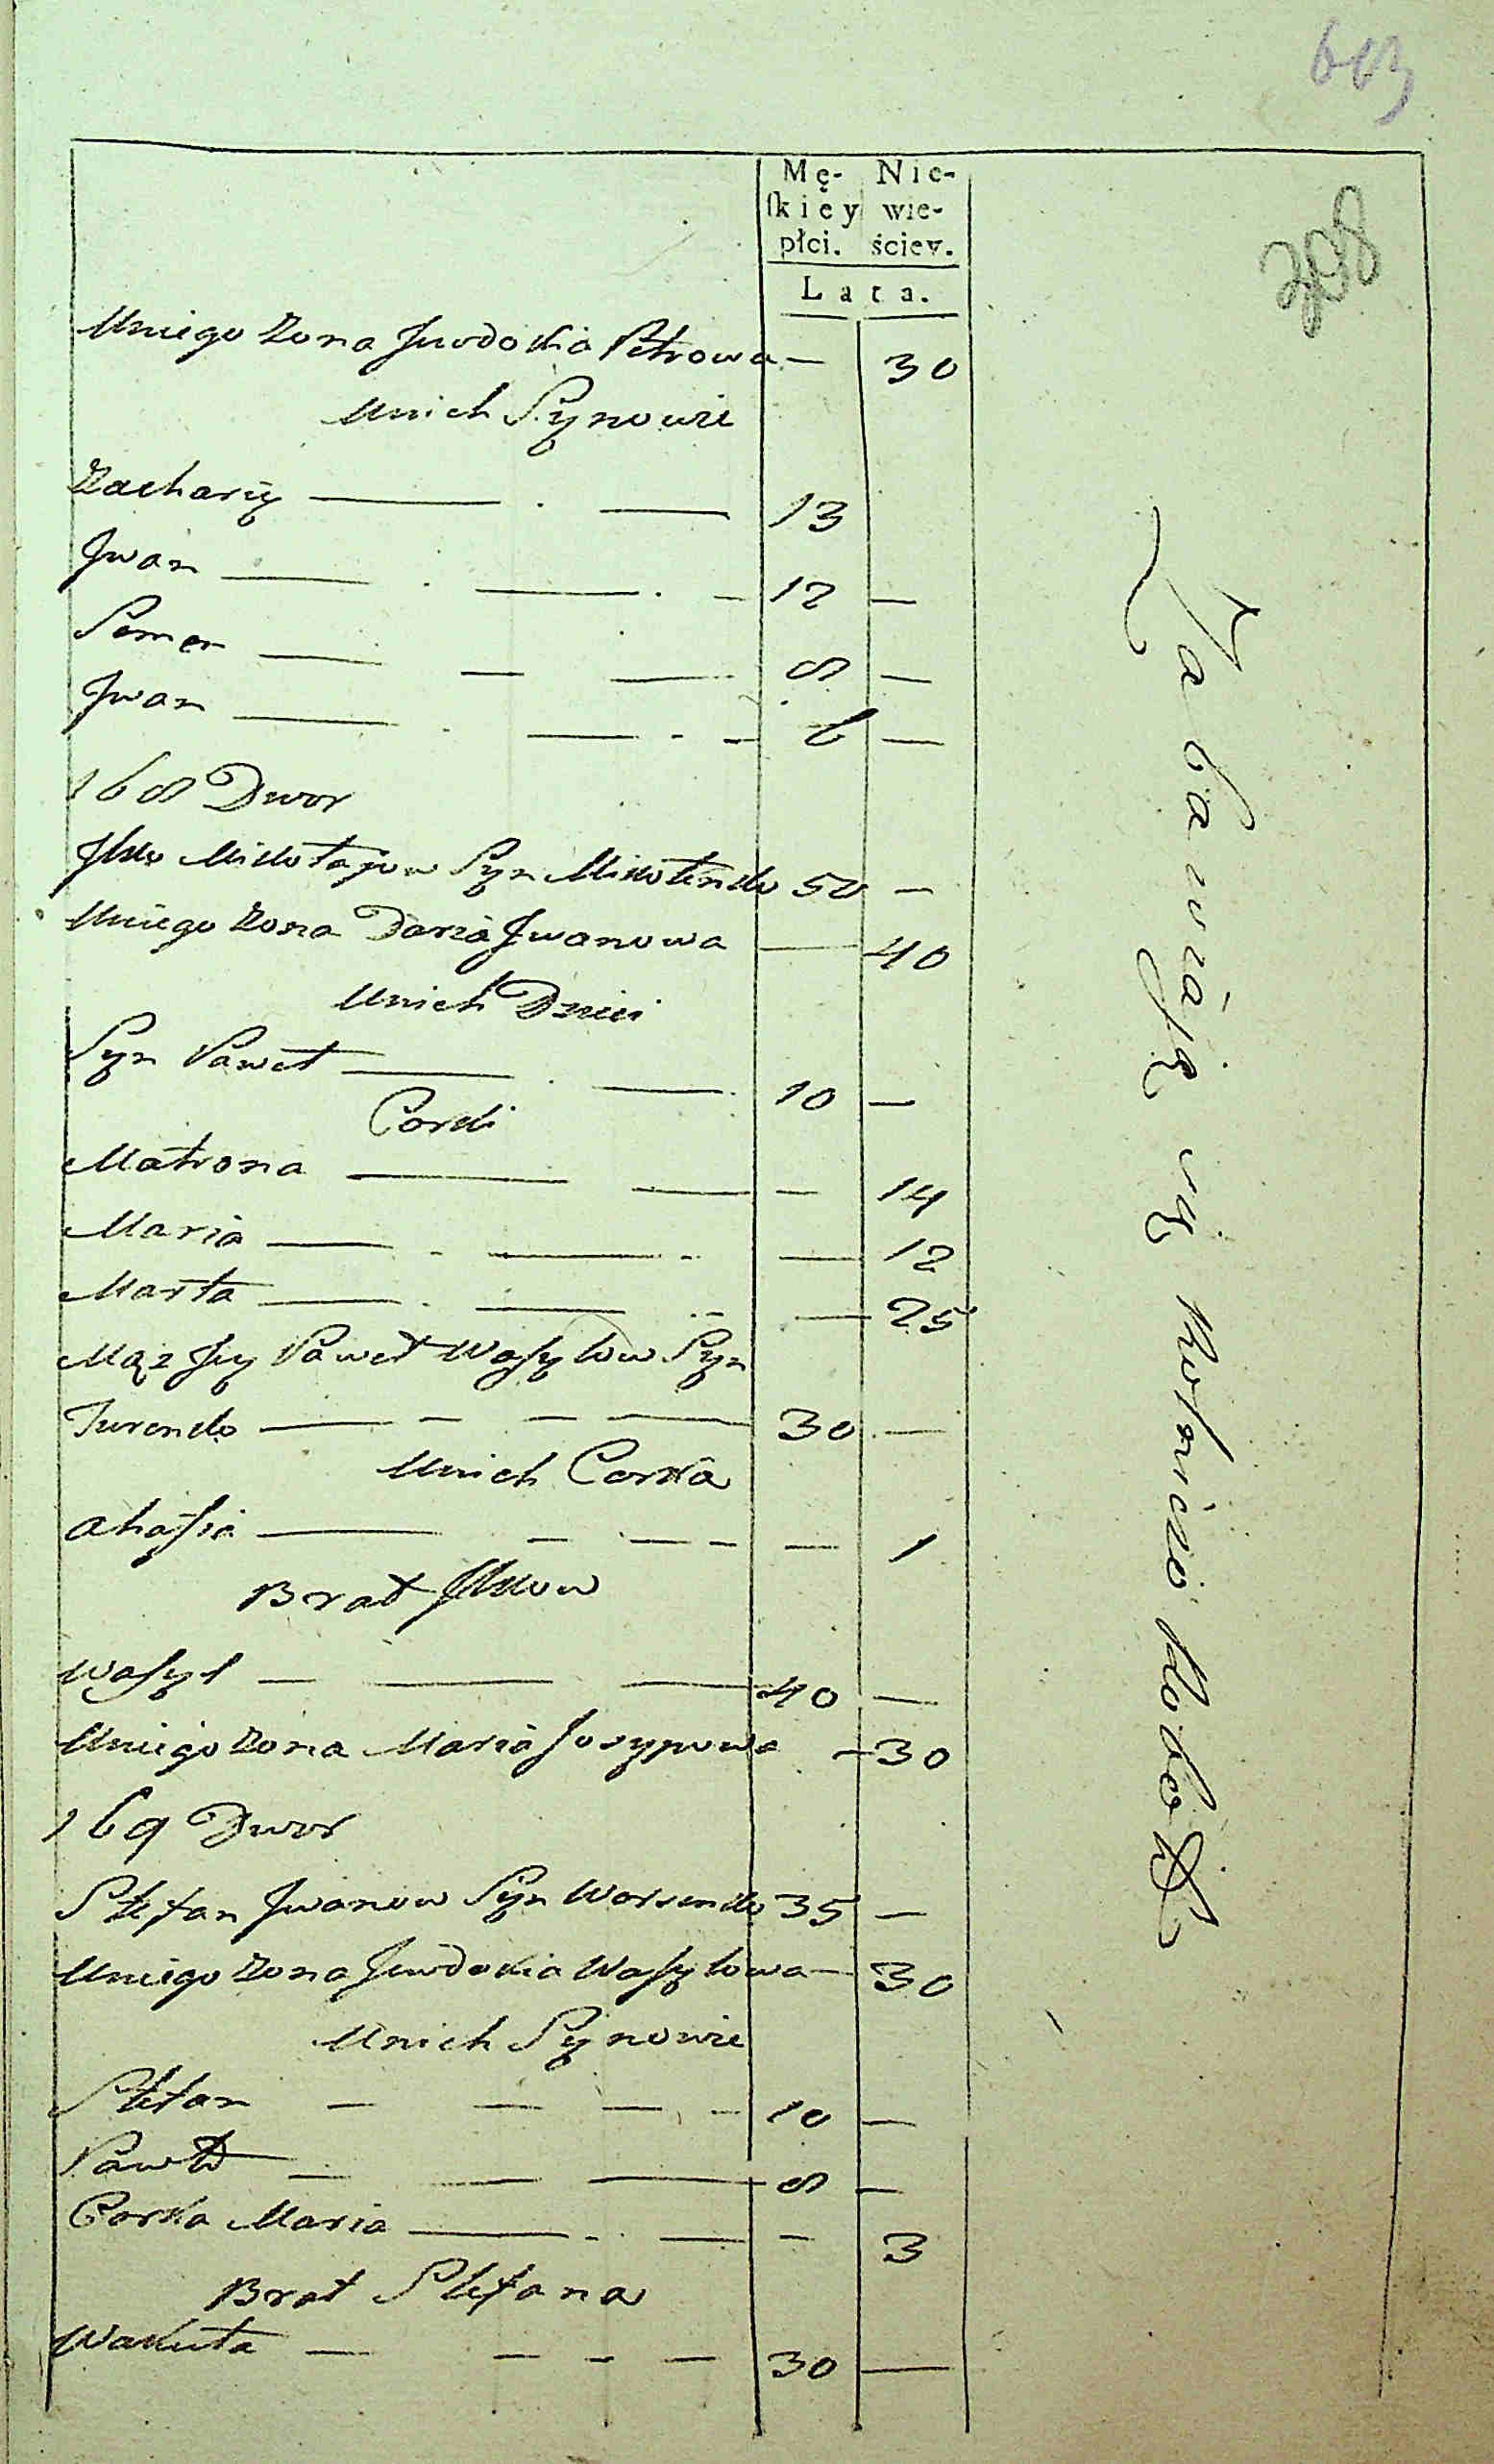 603
398
Mę- Nie-
ſkiey wie-
płci. ściey.
Lata.
Uniego Zona Juvdokia Petrowa — 30
Unich Synowie
Zachariy — 13
Jwan — 12 —
Semen — 8 —
Jwan — 6 —
168 Dwor
Jlko Mikołajow Syn Mikołenko 50 —
Uniego Zona Daria Jwanowa — 40
Unich Dzieci
Syn Paweł — 10 —
Corki
Matrona — 14
Maria — 12
Marta — 25
Mąz Jey Paweł Waſylow Syn
Jurenko — 30 —
Unich Corka
Ahafia — 1
Brat Jlkow
Waſyl — 40 —
Uniego Zona Maria Josypowa — 30
169 Dwor
Stefan Jwanow Syn 35 —
Uniego Zona Juvdokia Waſylowa — 30
Unich Synowie
Stefan — 10 —
Paweł — 8 —
Corka Maria — 3
Brat Stefana
Wakuła — 30 —
Zabawiaią się Rolniczo Robotą